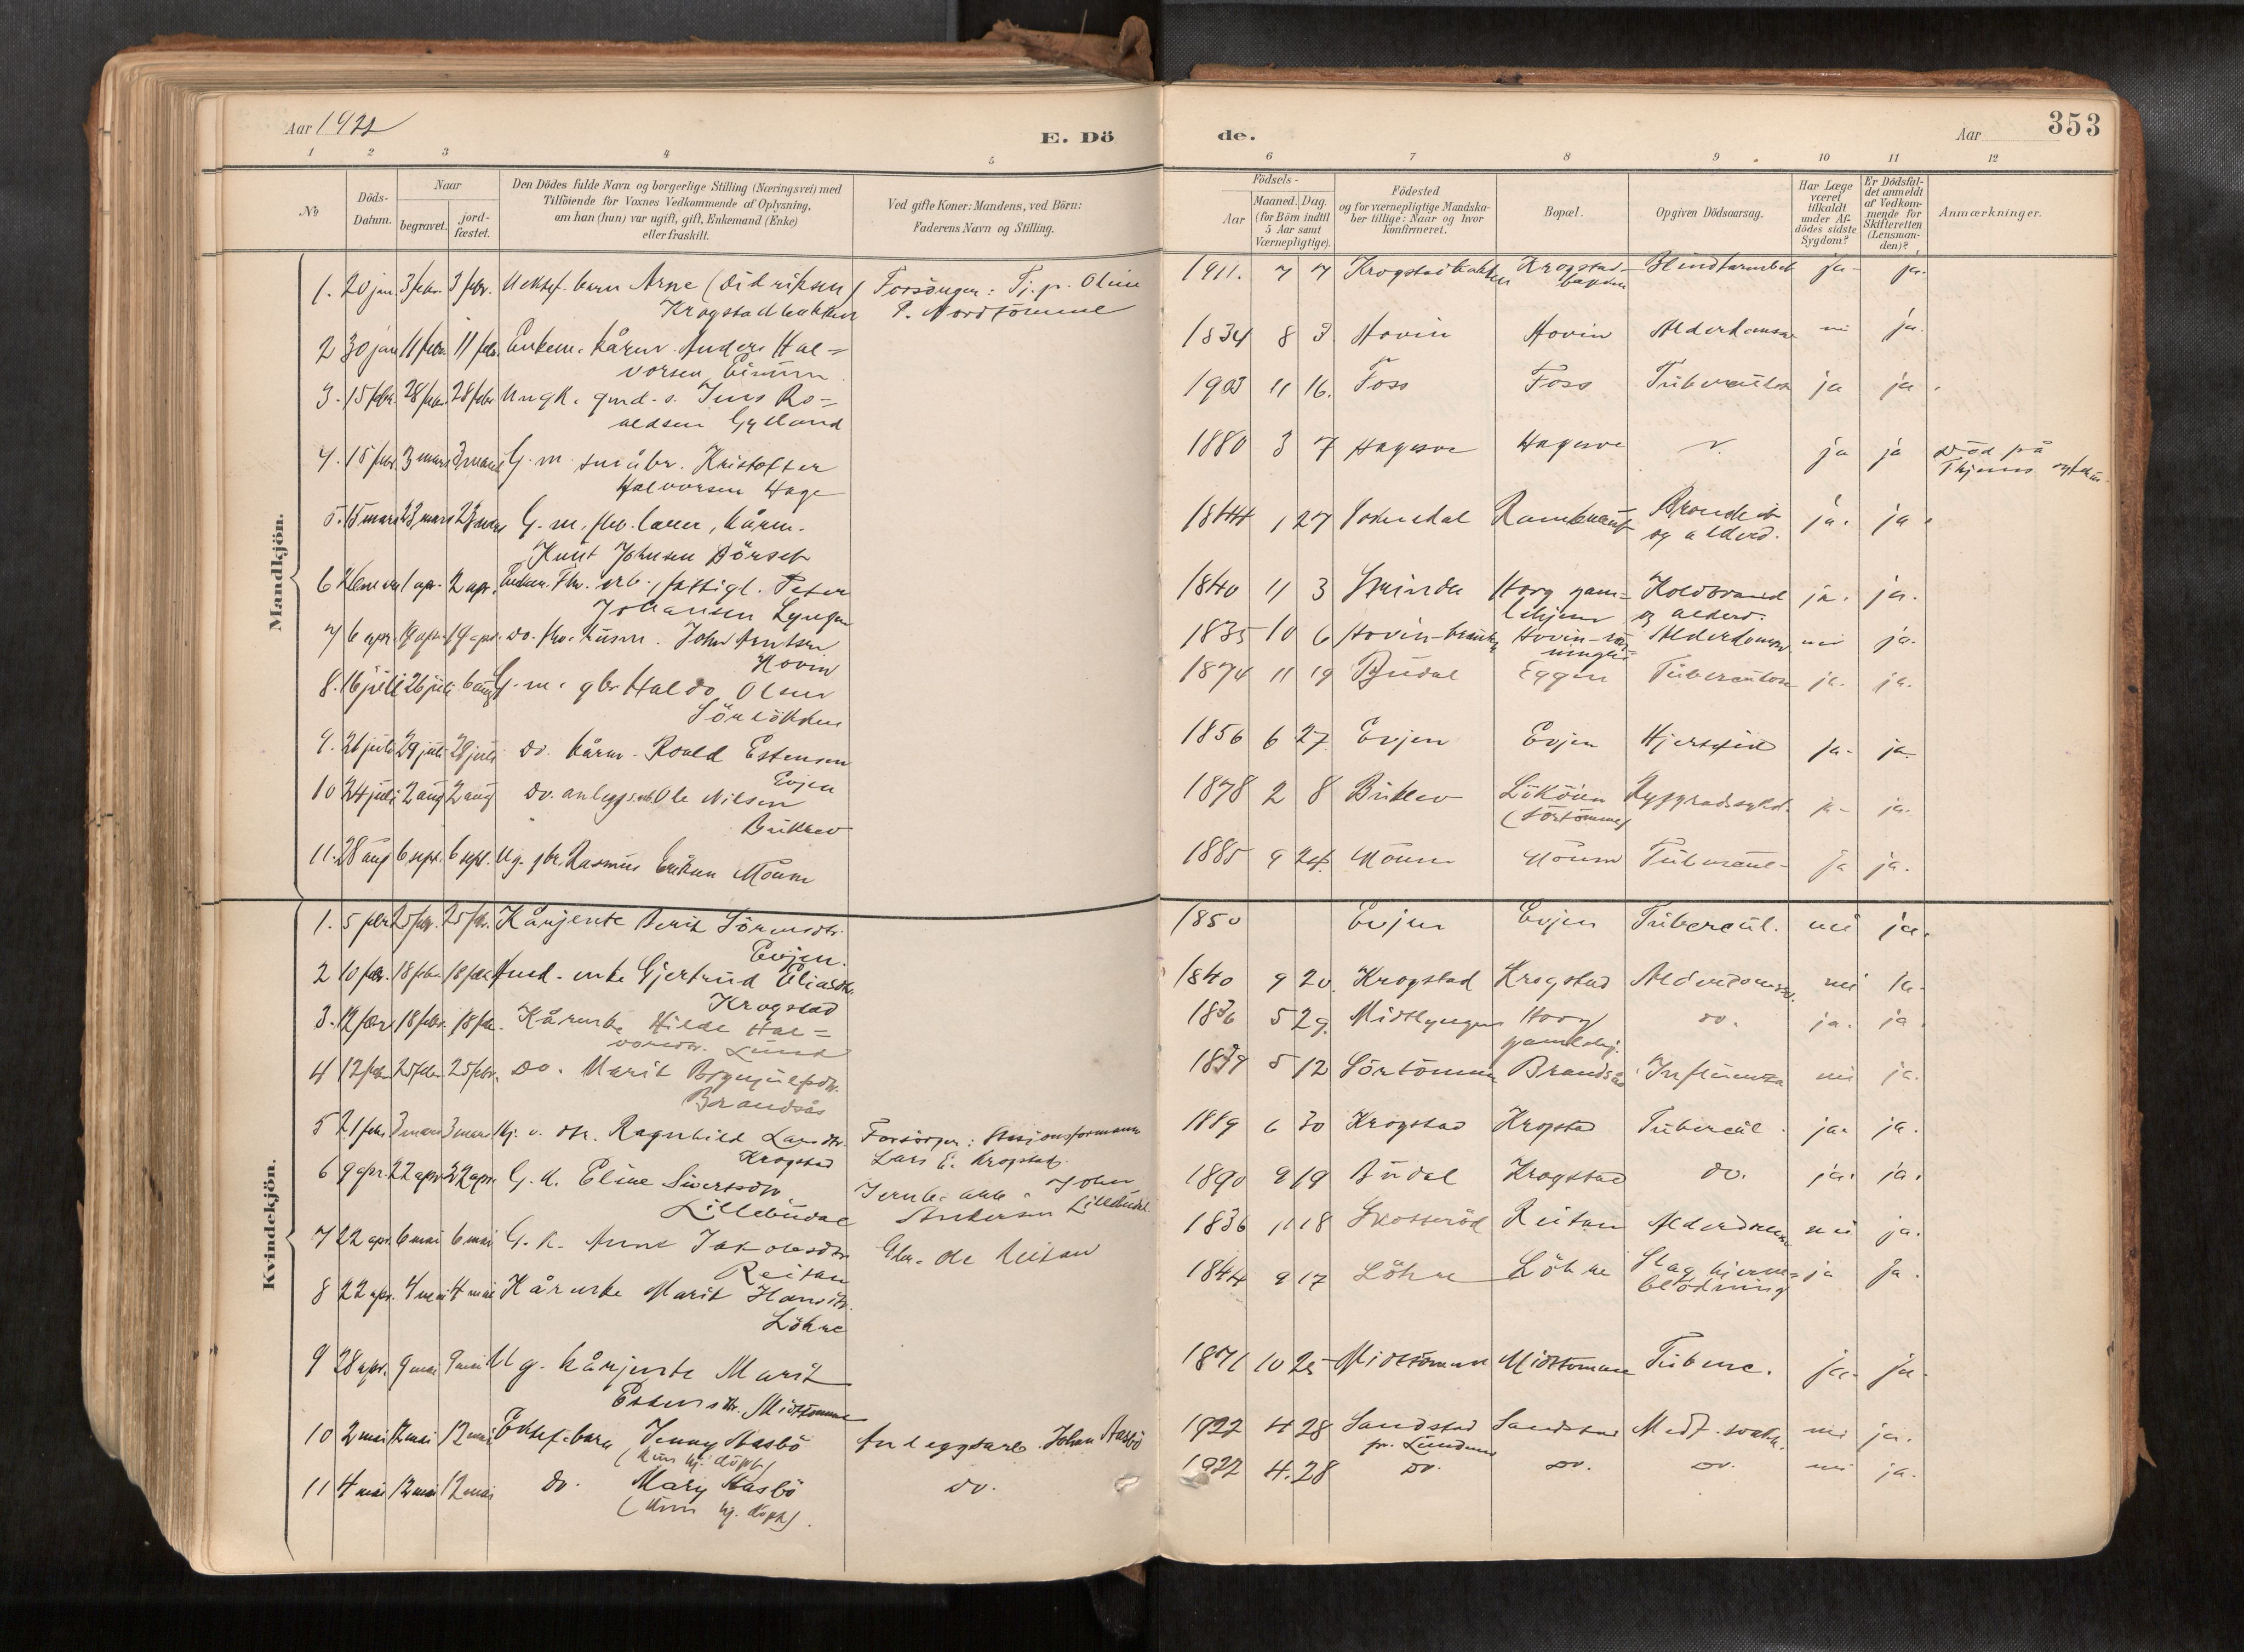 Aar 1922
E. Dö
de.
Aar
353
1 2 3 4 5 6 7 8 9 10 11 12
№
Döds-
Datum.
Naar
begravet.
jord-
fæstet.
Den Dödes fulde Navn og borgerlige Stilling (Næringsvei) med
Tilföiende for Voxnes Vedkommende af Oplysning,
om han (hun) var ugift, gift, Enkemand (Enke)
eller fraskilt.
Ved gifte Koner: Mandens, ved Börn:
Faderens Navn og Stilling.
Födsels-
Aar
Maaned. Dag.
(for Börn indtil
5 Aar samt
Værnepligtige).
Födested
og for værnepligtige Mandska-
ber tillige: Naar og hvor
konfirmeret.
Bopæl.
Opgiven Dödsaarsag.
Har Læge
været
tilkaldt
under Af-
dödes sidste
Sygdom?
Er Dödsfal-
det anmeldt
af Vedkom-
mende for
Skifteretten
(Lensman-
den)?
Anmærkninger.
Mandkjön.
1. 20 jan. 3 febr. 3 febr. Uektef. barn Arne (Didriksen) Forsörger: Tj. p. Oline 1911. 7 7 Krogstadbakken Krogstad- Blindtarmbet ja ja.
Krogstadbakken P. Nordtömme bakken
2 30 jan 11 febr. 11 febr. Enkem. kårm. Anders Hal= 1834 8 3 Hovin Hovin Alderdomssv. nei ja.
vorsen Einum
3. 15 febr. 28 febr. 28 febr. Ungk. gmd. s. Jens Ro= 1903 11 16. Foss Foss Tuberculose ja ja.
aldsen Gylland
4. 15 febr. 3 mars 3 mars G. m. småbr. Kristoffer 1880 3 7 Hageso Hageso ja ja Död på
Halvorsen Hage Thjems sykehus
5. 15 mars 23 mars 23 mars G. m. fhv. lærer, kårm. 1844 1 27 Soknedal Bronkit ja. ja.
Knut Johnsen Börset og alderd.
6 26 mars 1 apr. 2 apr. Enkem. Fhv. arb., fattigl. Peter 1840 11 3 Horg gam= Koldbrand ja. ja.
Johansen Lyngen lehjem og alderd.
7 6 apr. 19 apr. 19 apr. do. fhv. husm. John Arntsen 1835 10 6 Hovin Alderdomssv. nei ja.
Hovin
8. 16 juli 26 juli 6 aug G. m. gbr. Haldo Olsen 1874 11 19 Budal Eggen Tuberculose ja. ja.
Sörlökken
9. 21 juli 29 juli 29 juli do. kårm. Roald Estensen 1856 6 27 Evjen Evjen Hjertefeil ja. ja.
Evjen
10 24 juli 2 aug 2 aug do. anleggsarb. Ole Nilsen 1878 2 8 Buklev Lököien Ryggradssykd. ja ja.
Buklev (Sörtömme)
11. 28 aug 6 sept. 6 sept. Ug. gbr. Rasmus Eriksen Moum 1885 9 24. Moum Moum Tubercul. ja ja.
Kvindekjön.
1. 5 febr 25 febr. 25 febr. Kårjente Berit Sörensdtr. 1850 Evjen Evjen Tubercul. nei ja.
Evjen.
2 10 febr. 18 febr. 18 febr. enke Gjertrud Eliasdtr. 1840 9 20. Krogstad Krogstad Alderdomssv. nei ja.
Krogstad
3. 12 febr 18 febr. 18 febr. Kårenke Hilde Hal= 1836 5 29. Midtlyngen Horg do. ja. ja.
vorsdtr. Lund gamlehj.
4 12 febr. 25 febr. 25 febr. do. Marit Brynjulfsdtr. 1839 5 12 Sörtömme Brandsås Influenza nei ja.
Brandsås
5 21 febr 3 mars 3 mars dtr. Ragnhild Larsdtr. Forsörger: Stasjonsformann 1889 6 30 Krogstad Krogstad Tubercul. ja. ja.
Krogstad Lars E. Krogstad.
6 9 apr. 22 apr. 22 apr. G. k. Eline Sivertsdtr. Jernb. arb. John 1890 9 19 Budal Krogstad do. ja. ja.
Lillebudal Andersen Lillebudal.
7 22 apr. 6 mai 6 mai G. k. Anne Jakobsdtr. Gbr. Ole Reitan 1836 11 18 Reitan Alderdomssv. nei ja.
Reitan
8 22 apr. 4 mai 4 mai Kårenke Marit Hansdtr. 1844 9 17 Löhre Löhre Slag hjerne= ja ja.
Löhre blödning
9 28 apr. 9 mai 9 mai Ug. kårjente Marit 1871 10 25 Midttömme Midttömme Tuberc. ja. ja.
Estensdtr. Midttömme
10 2 mai 12 mai 12 mai Ektef. barn Jenny Aasbö Anleggsarb. Johan Aasbö 1922 4 28 Sandstad Sandstad Medf. svakh. nei ja.
(kun hj. döpt) pr. Lundemo
11 4 mai 12 mai 12 mai do. Mary Aasbö do. 1922 4. 28 do. do. do. nei ja.
(kun hj. döpt).